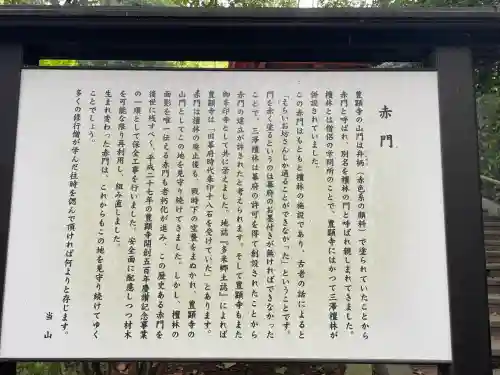 赤門
豊顕寺の山門は弁柄（赤色系の顔料）で塗られていたことから
赤門と呼ばれ、別名を檀林の門と呼ばれ親しまれてきました。
檀林とは僧侶の学問所のことで、豊顕寺にはかつて三澤檀林が
併設されていました。
この赤門はもともと檀林の施設であり、古老の話によると
「えらいお坊さんしか通ることができなかった」ということです。
門を赤く塗るというのは幕府のお墨付きが無ければできなかった
ことで、三澤檀林は幕府の許可を得て創設されたことから
赤門の建立が許されたと考えられます。そして豊顕寺もまた
御朱印寺として共に栄えました。地誌『多米郷土誌』によれば
豊顕寺は「旧幕府時代朱印十八石を受けていた」とあります。
赤門は檀林の廃止後も、戦時下の空襲をまぬかれ、豊顕寺の
山門としてこの地を見守り続けてきました。しかし、檀林の
面影を唯一伝える赤門も老朽化が進み、この歴史ある赤門を
後世に残すべく、平成二十七年の豊顕寺開創五百年慶讃記念事業
の一環として保全工事を行いました。安全面に配慮しつつ材木
を可能な限り再利用し、組み直しました。
生まれ変わった赤門は、これからもこの地を見守り続けてゆく
ことでしょう。
多くの修行僧が学んだ往時を偲んで頂ければ何よりと存じます。
当山